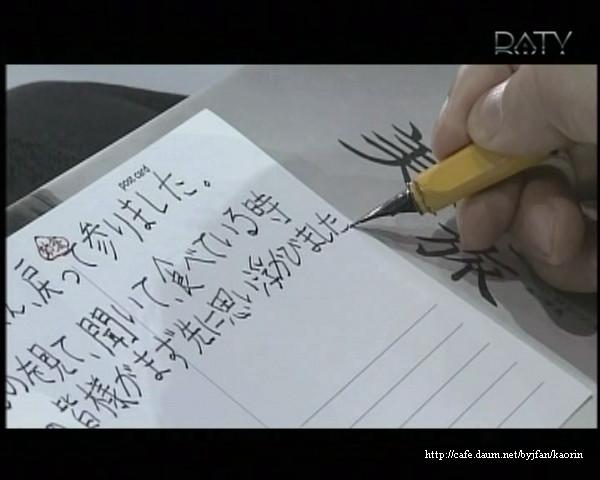 post card
ん、戻って参りました。
のを見て、聞いて、食べている時
皆様がまず先に思い浮かびました
旅
http://cafe.daum.net/byjfan/kaorin